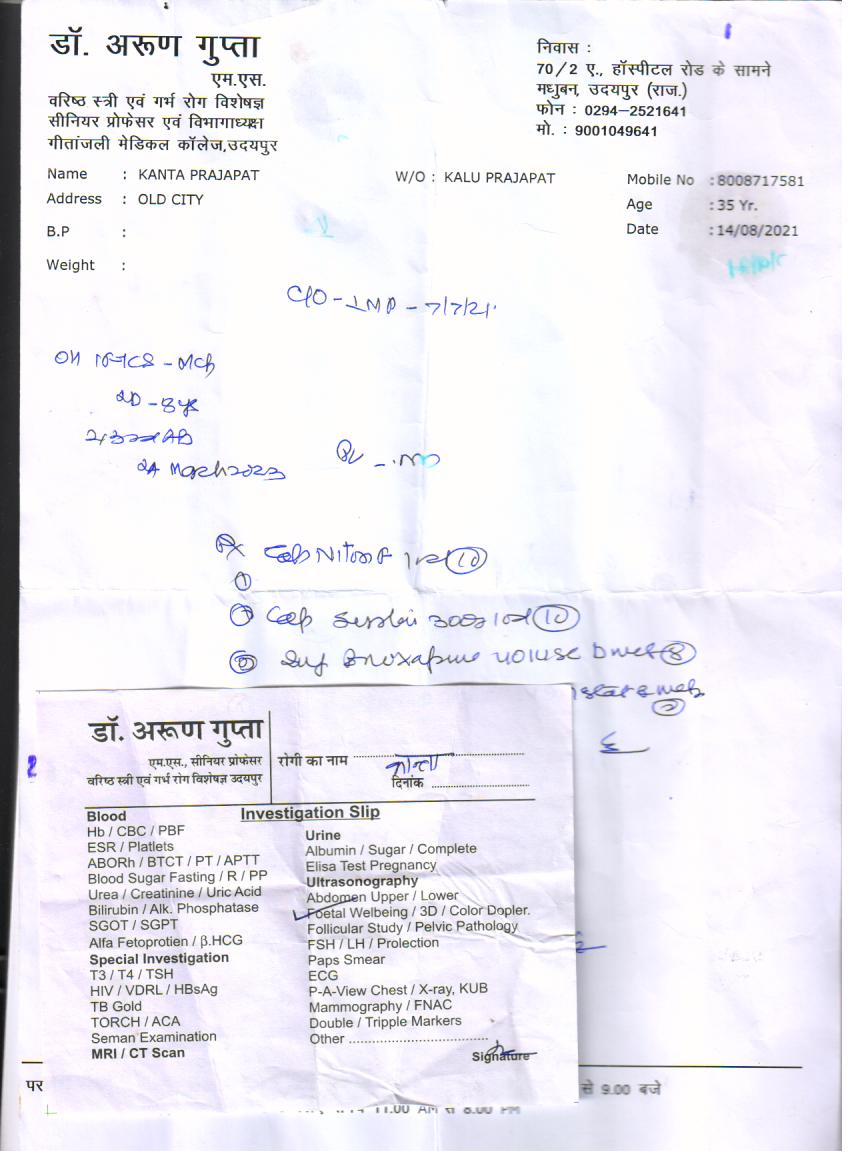 डॉ. अरूण गुप्ता
एम.एस.
वरिष्ठ स्त्री एवं गर्भ रोग विशेषज्ञ
सीनियर प्रोफेसर एवं विभागाध्यक्ष
गीतांजली मेडिकल कॉलेज,उदयपुर
निवास :
70/2 ए., हॉस्पीटल रोड के सामने
मधुबन, उदयपुर (राज.)
फोन : 0294-2521641
मो. : 9001049641
Name : KANTA PRAJAPAT
W/O : KALU PRAJAPAT
Mobile No : 8008717581
Address : OLD CITY
Age : 35 Yr.
B.P :
Date : 14/08/2021
Weight :
C/O - LMP - 7/7/21
Rx Cap
1
Cap 10
डॉ. अरूण गुप्ता
एम.एस., सीनियर प्रोफेसर
वरिष्ठ स्त्री एवं गर्भ रोग विशेषज्ञ उदयपुर
रोगी का नाम कान्ता
दिनांक
Investigation Slip
Blood
Hb / CBC / PBF
ESR / Platlets
ABORh / BTCT / PT / APTT
Blood Sugar Fasting / R / PP
Urea / Creatinine / Uric Acid
Bilirubin / Alk. Phosphatase
SGOT / SGPT
Alfa Fetoprotien / β.HCG
Special Investigation
T3 / T4 / TSH
HIV / VDRL / HBsAg
TB Gold
TORCH / ACA
Seman Examination
MRI / CT Scan
Urine
Albumin / Sugar / Complete
Elisa Test Pregnancy
Ultrasonography
Abdomen Upper / Lower
Foetal Welbeing / 3D / Color Dopler.
Follicular Study / Pelvic Pathology
FSH / LH / Prolection
Paps Smear
ECG
P-A-View Chest / X-ray, KUB
Mammography / FNAC
Double / Tripple Markers
Other
Signature
पर
से 9.00 बजे
11.00 AM से 8.00 PM